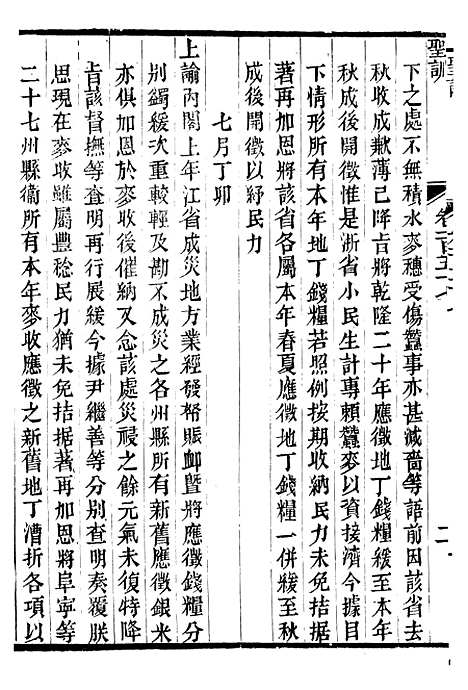 聖訓
卷一百五十七
二
下之處不無積水麥穗受傷蠶事亦甚減嗇等語前因該省去
秋收成歉薄已降旨將乾隆二十年應徵地丁錢糧緩至本年
秋成後開徵惟是浙省小民生計專賴蠶麥以資接濟今據目
下情形所有本年地丁錢糧若照例按期收納民力未免拮据
著再加恩將該省各屬本年春夏應徵地丁錢糧一併緩至秋
成後開徵以紓民力
七月丁卯
上諭內閣上年江省成災地方業經發帑賑䘏暨將應徵錢糧分
別蠲緩次重較輕及勘不成災之各州縣所有新舊應徵銀米
亦俱加恩於麥收後催納又念該處災祲之餘元氣未復特降
旨該督撫等查明再行展緩今據尹繼善等分別查明奏覆朕
思現在麥收雖屬豐稔民力猶未免拮据著再加恩將阜寧等
二十七州縣衞所有本年麥收應徵之新舊地丁漕折各項以